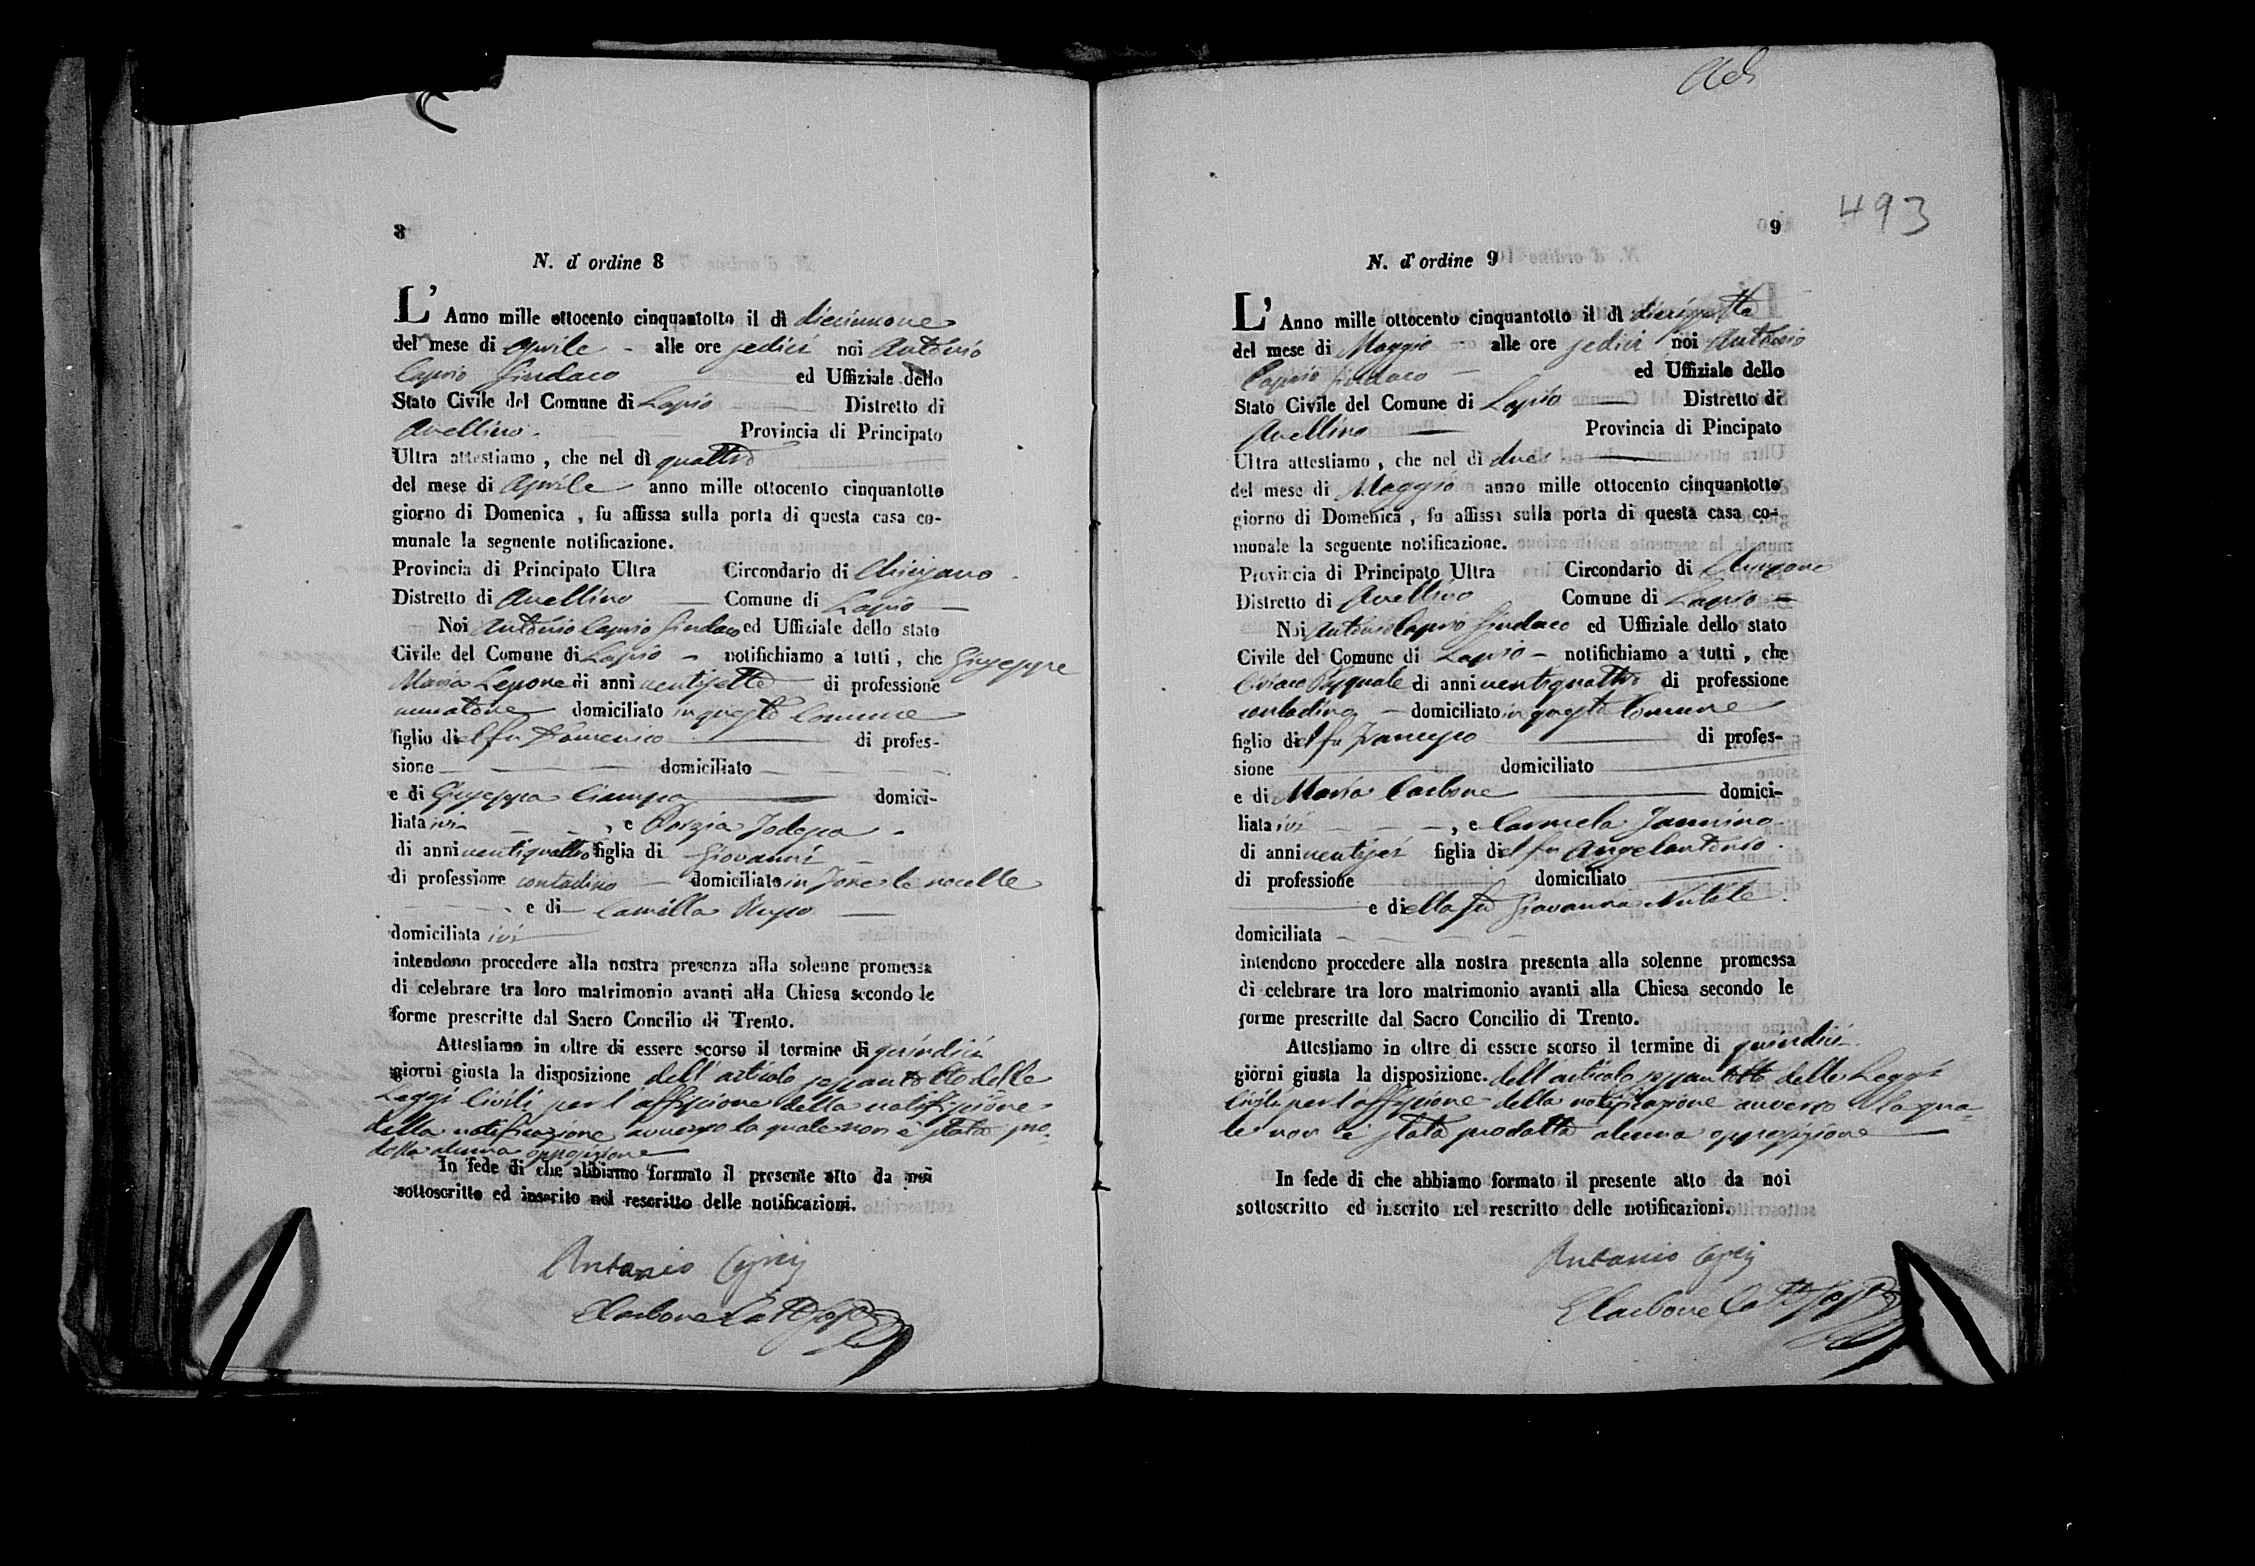 8
N. d'ordine 8
L'Anno mille ottocento cinquantotto il dì diciannove
del mese di Aprile - alle ore sedici noi Antonio
Caprio Sindaco ed Uffiziale dello
Stato Civile del Comune di Lapio Distretto di
Avellino. Provincia di Principato
Ultra attestiamo, che nel dì quattro
del mese di Aprile anno mille ottocento cinquantotto
giorno di Domenica, fu affissa sulla porta di questa casa co-
munale la seguente notificazione.
Provincia di Principato Ultra Circondario di Chiusano
Distretto di Avellino Comune di Lapio
Noi Antonio Caprio Sindaco ed Uffiziale dello stato
Civile del Comune di Lapio - notifichiamo a tutti, che Giuseppe
Maria Lepore di anni ventisette di professione
muratore domiciliato in questo Comune
figlio del fu Domenico di profes-
sione domiciliato
e di Giuseppa Ciampa domici-
liata ivi, e Porzia
di anni ventiquattro figlia di Giovanni
di professione contadino domiciliato in le nocelle
e di Camilla
domiciliata ivi
intendono procedere alla nostra presenza alla solenne promessa
di celebrare tra loro matrimonio avanti alla Chiesa secondo le
forme prescritte dal Sacro Concilio di Trento.
Attestiamo in oltre di essere scorso il termine di quindici
giorni giusta la disposizione dell'articolo sessantotto delle
Leggi Civili per l'affissione della notificazione
della notificazione avverso la quale non è stata pro-
dotta alcuna opposizione
In fede di che abbiamo formato il presente atto da noi
sottoscritto ed inserito nel rescritto delle notificazioni.
Antonio Caprio
Carbone
493
9
N. d'ordine 9
L'Anno mille ottocento cinquantotto il dì diecisette
del mese di Maggio - alle ore sedici noi Antonio
Caprio Sindaco - ed Uffiziale dello
Stato Civile del Comune di Lapio Distretto di
Avellino Provincia di Pincipato
Ultra attestiamo, che nel dì due
del mese di Maggio anno mille ottocento cinquantotto
giorno di Domenica, fu affissa sulla porta di questa casa co-
munale la seguente notificazione.
Provincia di Principato Ultra Circondario di Chiusano
Distretto di Avellino Comune di Lapio
Noi Antonio Caprio Sindaco ed Uffiziale dello stato
Civile del Comune di Lapio - notifichiamo a tutti, che
Pasquale di anni ventiquattro di professione
contadino - domiciliato in questo Comune
figlio del fu di profes-
sione domiciliato
e di Maria Carbone domici-
liata ivi, e Carmela Jannino
di anni ventisei figlia del fu Angelantonio.
di professione domiciliato
e della fu Giovanna
domiciliata
intendono procedere alla nostra presenta alla solenne promessa
di celebrare tra loro matrimonio avanti alla Chiesa secondo le
forme prescritte dal Sacro Concilio di Trento.
Attestiamo in oltre di essere scorso il termine di quindici
giorni giusta la disposizione. dell'articolo sessantotto delle Leggi
Civili per l'affissione della notificazione avverso la qua-
le non è stata prodotta alcuna opposizione
In fede di che abbiamo formato il presente atto da noi
sottoscritto ed inserito nel rescritto delle notificazioni.
Antonio Caprio
Carbone